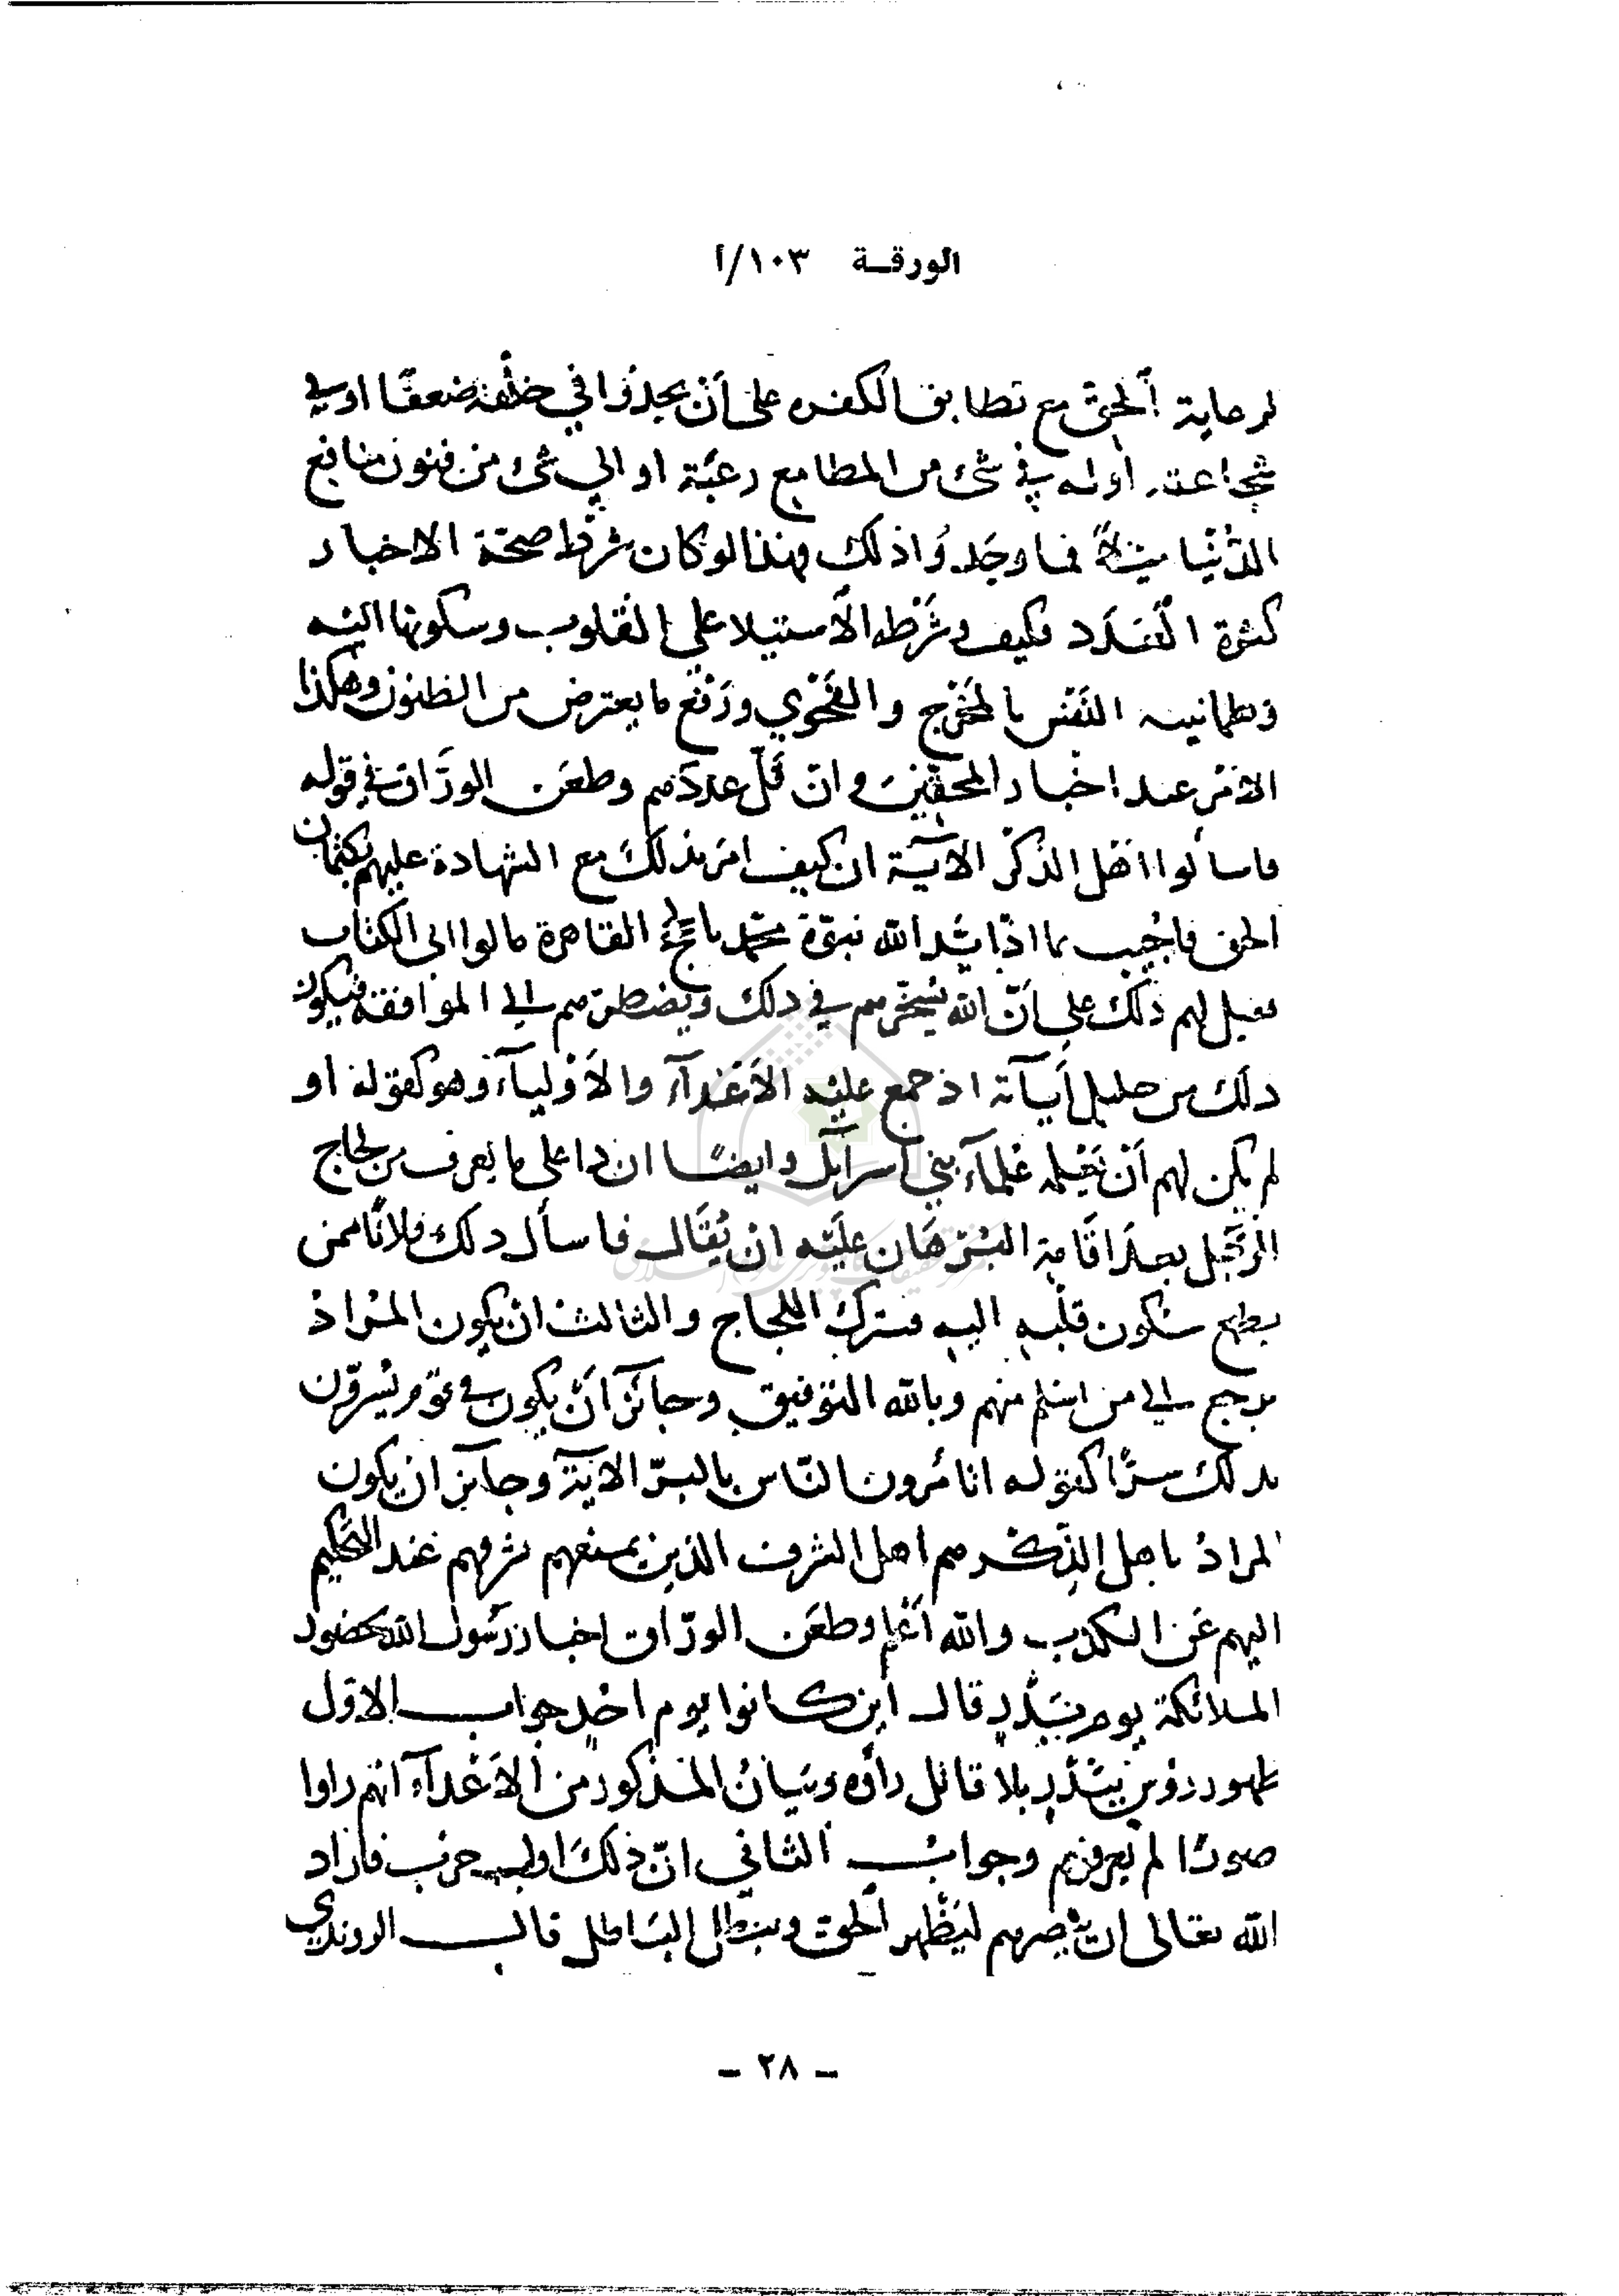 الورقـة ١٠٣/أ
لرعاية الحق مع تطابق الكفره على أن يجدوا في خلقه ضعفا او في
شجاعته اوله في شئ من المطامع رغبة او الي شئ من فنون منافع
الدُنْيا ميلاً فما وجَدُوا ذلك وهذا لو كان شرط صحّة الاخبار
كثرة العَدَد فكيف وشَرْطه الأستيلا على القلوب وسكونها اليْه
وطمانينه النَفْس بالمخرج والفَحْوي ورَفع ما يعترض من الظنون وهكذا
الامْر عند اخْبار المحقّين وان قَلّ عددَهم وطعَن الورّاق في قوله
فاسألوا اهْل الذكْر الآية ان كيف امَر بذلك مع الشهادة عليهم بكتمان
الحق فاجُيب بما اذا شد الله نبوّة محمّد بالحجج القاهرة مالوا الى الكتاب
فقيل لهم ذلك على أنّ الله يُسخّرهم في ذلك ويضطرّهم الي الموافقه فيكون
ذلك من جليل أياته اذ جمع عليْه الأعْدآء والأوْليآء وهو كقوله او
لم يكن لهم أنْ يَعْلمه عُلمآء بني اسرآيل وايضًا ان ذا على ما يعرف من لجاج
الرَّجُل بعد اقَامة البُرْهَان عليْه ان يُقَال فاسأل ذلك فلانًا ممن
يطمع سُكون قلْبه اليه فيترك اللجاج والثالث ان يكون المُراد
يرجع الي من اسْلم منهم وبالله التوفيق وجائز أنْ يكون في قوْم يُسرّون
بذلك سرًّا كقوله اتأمُرون النّاس بالبرّ الآية وجآيز ان يكون
المرادُ باهل الذِّكْر هم اهل الشرف الذين يمنعهم شرفهم عند التحْكيم
اليهم عَن الكذب والله أعْلم وطعَن الورّاق اخبار رَسُول الله بحضور
الملائكة يوم بَدْرٍ قال أين كانوا يوم احُدٍ جواب الاوّل
ظهور رؤس ببدْرٍ بلا قاتل رأوْه وبَيانُ المذكور من الأعْدآء انهم راوا
صورًا لم يعرفوهم وجوابُ الثاني انّ ذلكَ اول حرْب فاراد
الله تعالى ان ينْصرهم ليَظْهر الحق ويبْطل البَاطل قال الروندي
– ٢٨ –